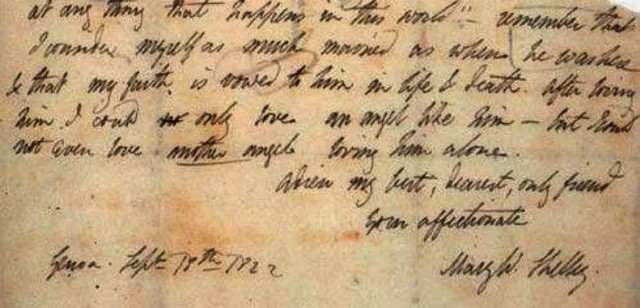 at any thing that happens in this world" — remember that
I consider myself as much married as when he was here
& that my faith is vowed to him in life & death. after loving
him I could only love an angel like him — but I could
not even love another angel loving him alone.
Adieu my best, dearest, only friend
Your affectionate
Genoa. Sept 18th 1822 Mary W. Shelley.